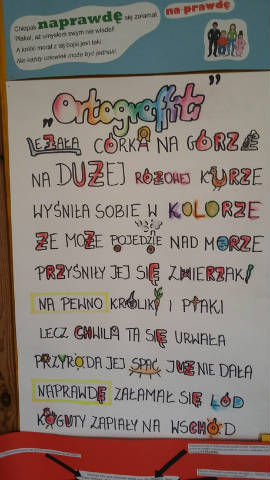 Chłopak naprawdę się załamał.
Płakał, aż umysłem swym nie władał!
A krótki morał z tej bajki jest taki:
Nie każdy człowiek może być jednaki.
na prawdę
„Ortograffiti”
LEŻAŁA CÓRKA NA GÓRZE
NA DUŻEJ RÓŻOWEJ KURZE
WYŚNIŁA SOBIE W KOLORZE
ŻE MOŻE POJEDZIE NAD MORZE
PRZYŚNIŁY JEJ SIĘ ZWIERZAKI
NA PEWNO KRÓLIKI I PTAKI
LECZ CHWILA TA SIĘ URWAŁA
PRZYRODA JEJ SPAĆ JUŻ NIE DAŁA
NAPRAWDĘ ZAŁAMAŁ SIĘ LÓD
KOGUTY ZAPIAŁY NA WSCHÓD